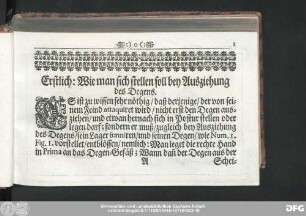 )o( 1
Erstlich: Wie man sich stellen soll bey Ausziehung
des Degens.
ES ist zu wissen sehr nöthig / daß derjenige / der von sei-
nem Feind attaquiret wird / nicht erst den Degen aus-
ziehen / und etwan hernach sich in Postur stellen oder
legen darf; sondern er muß / zugleich bey Ausziehung
des Degens / sein Lager formiren / und seinen Degen / wie Num. 1.
Fig. 1. vorstellet / entblössen / nemlich: Man leget die rechte Hand
in Prima an das Degen-Gefäß; Wann daß der Degen aus der
A Schei-